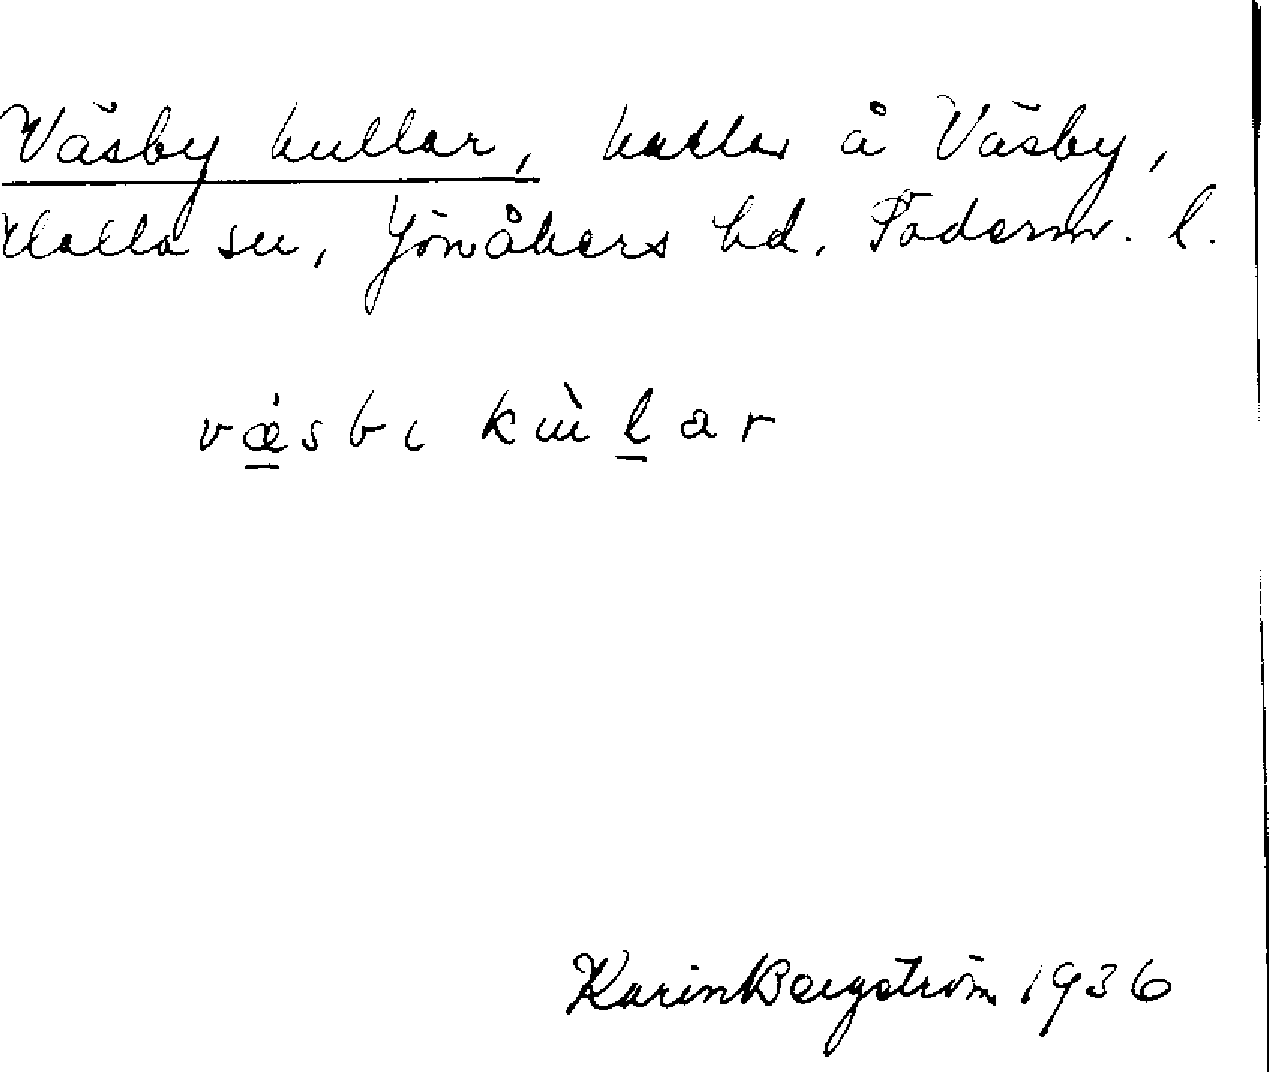 Väsby kullar, kullar å Väsby,
Halla sn, Jönåkers hd. Söderm. l.
vǽ̲sbɩ kùl̲ar
Karin Bergström 1936